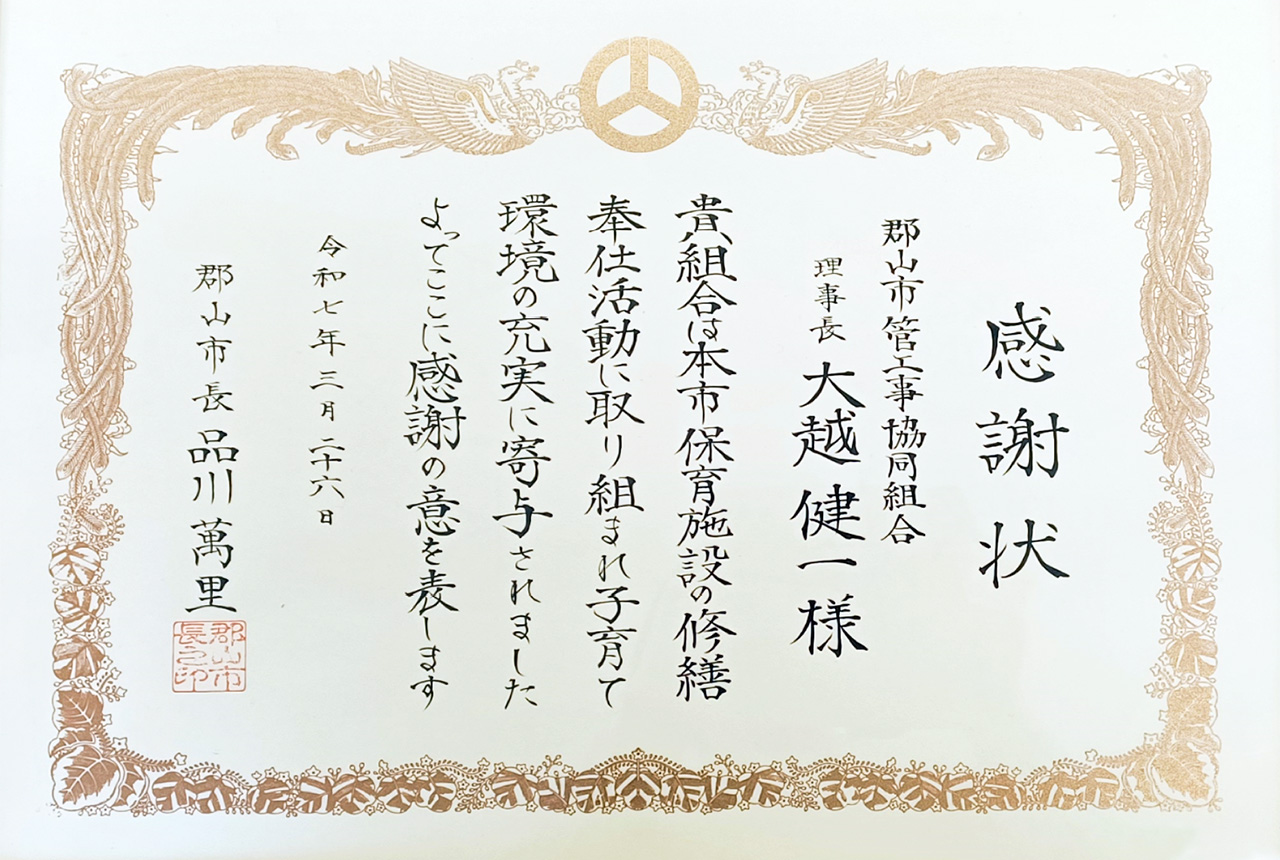 感謝状
郡山市管工事協同組合
理事長 大越健一様
貴組合は本市保育施設の修繕
奉仕活動に取り組まれ子育て
環境の充実に寄与されました
よってここに感謝の意を表します
令和七年三月二十六日
郡山市長 品川萬里
郡山市
長之印